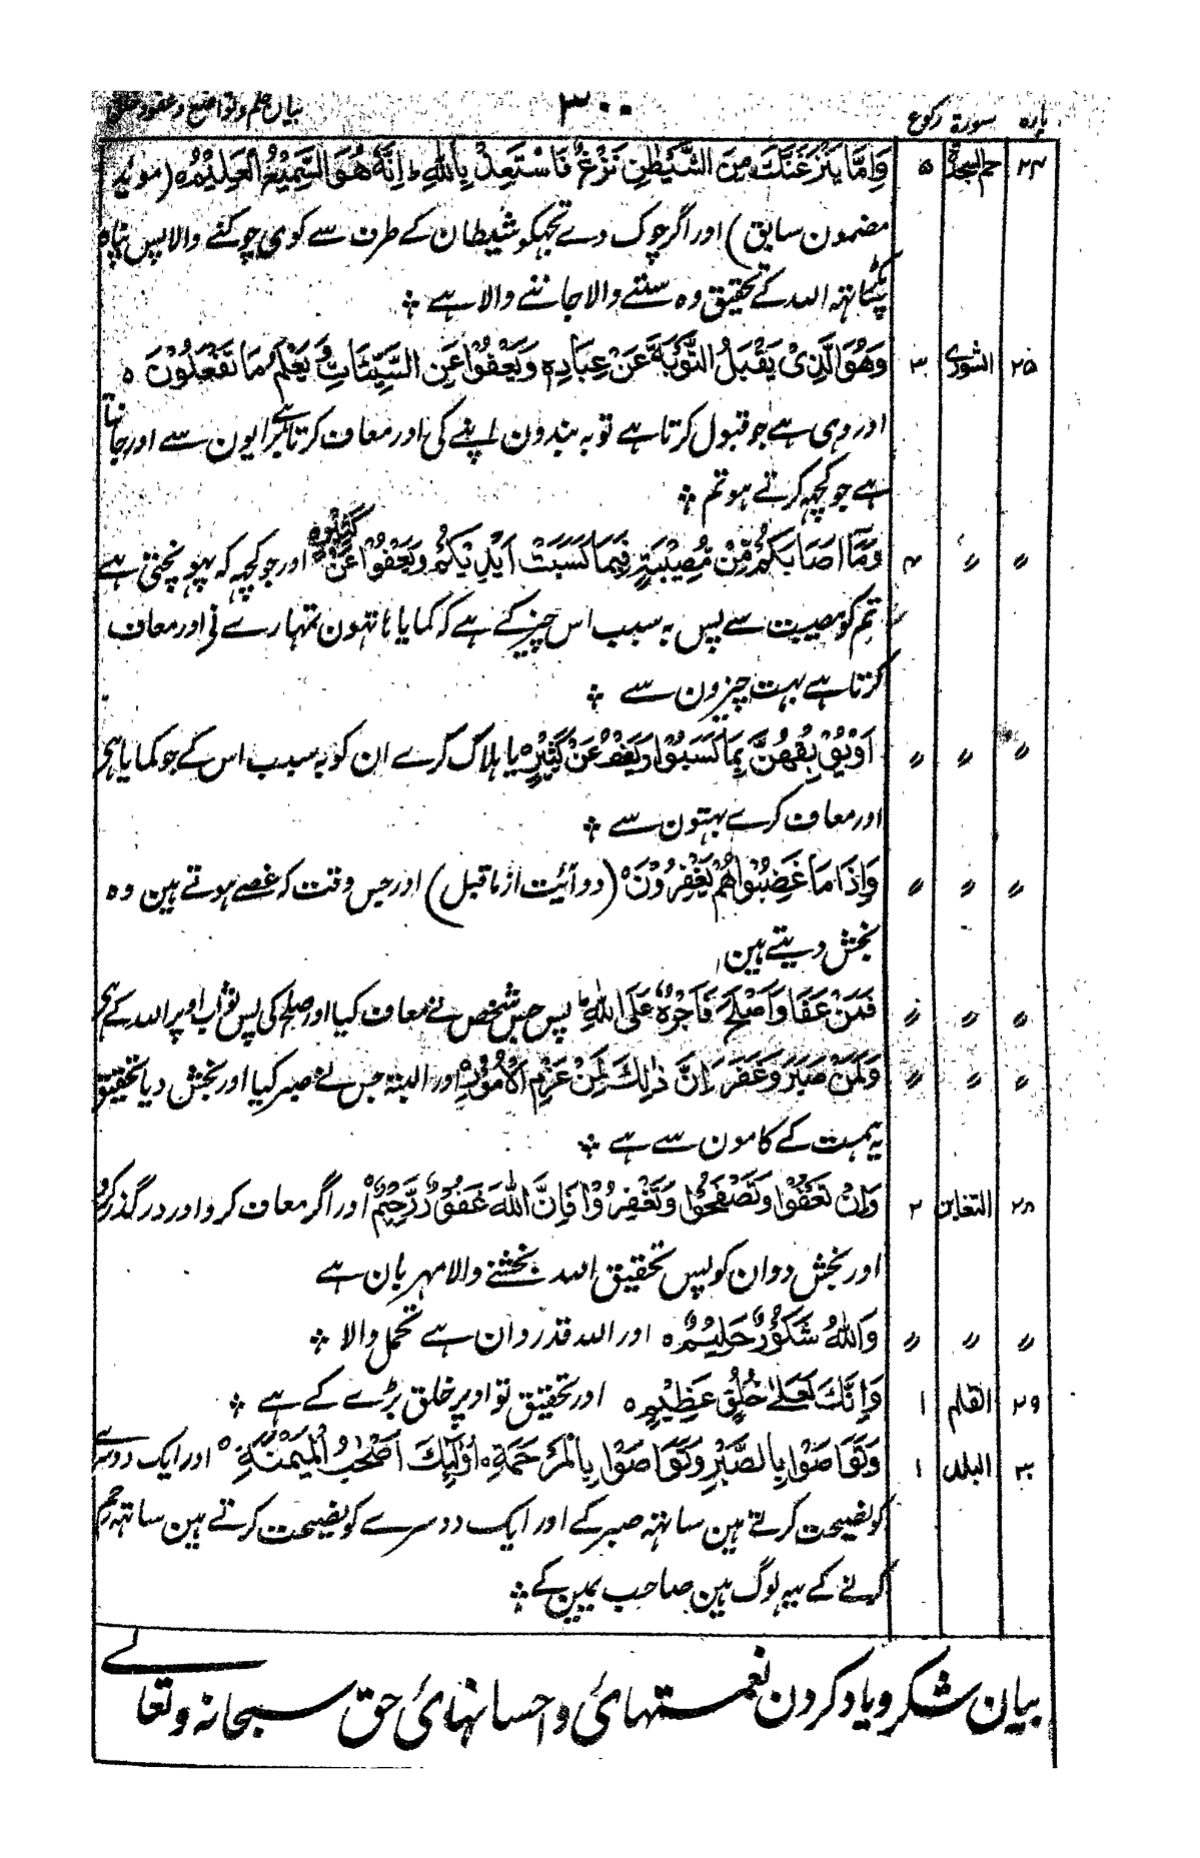 پارہ سورۃ رکوع ۳۰۰ بیان حلم و تواضع و عفو و خلق
۲۴ حم السجدۃ ۵ وَاِمَّا یَنْزَغَنَّكَ مِنَ الشَّیْطٰنِ نَزْغٌ فَاسْتَعِذْ بِاللهِ ؕ اِنَّهٗ هُوَ السَّمِیْعُ الْعَلِیْمُ ہ (موئید
مضمون سابق) اور اگر چوک دے تجہکو شیطان کے طرف سے کوی چوکنے والا پس پناہ
پکڑ ساتہہ اللہ کے تحقیق وہ سننے والا جاننے والا ہے
۲۵ الشوری ۳ وَهُوَ الَّذِیْ یَقْبَلُ التَّوْبَةَ عَنْ عِبَادِهٖ وَیَعْفُوْا عَنِ السَّیِّئَاتِ وَ یَعْلَمُ مَا تَفْعَلُوْنَ ہ
اور وہی ہے جو قبول کرتا ہے توبہ بندون اپنے کی اور معاف کرتا ہے برایون سے اور جانتا
ہے جو کچہہ کرتے ہو تم
〃 〃 ۴ وَمَا اَصَابَكُمْ مِّنْ مُّصِیْبَةٍ فَبِمَا كَسَبَتْ اَیْدِیْكُمْ وَیَعْفُوْا عَنْ كَثِیْرٍ ہ اور جو کچہہ کہ پہونچتی ہے
تم کو مصیبت سے پس بہ سبب اس چیز کے ہے کہ کمایا ہاتہون تمہارے نی اور معاف
کرتا ہے بہت چیزون سے
〃 〃 〃 اَوْیُوْبِقْهُنَّ بِمَا كَسَبُوْا وَیَعْفُ عَنْ كَثِیْرٍ ہ یا ہلاک کرے ان کو بہ سبب اس کے جو کمایا ہی
اور معاف کرے بہتون سے
〃 〃 〃 وَاِذَا مَا غَضِبُوْا هُمْ یَغْفِرُوْنَ ہ (دو آئیت از ما قبل) اور جس وقت کہ غصے ہوتے ہین وہ
بخش دیتے ہین
〃 〃 〃 فَمَنْ عَفَا وَاَصْلَحَ فَاَجْرُهٗ عَلَی اللهِ پس جس شخص نے معاف کیا اور صلح کی پس ثواب اوپر اللہ کے ہی
〃 〃 〃 وَلَمَنْ صَبَرَ وَغَفَرَ اِنَّ ذٰلِكَ لَمِنْ عَزْمِ الْاُمُوْرِ ہ اور البتہ جس نے صبر کیا اور بخش دیا تحقیق
یہ ہمت کے کامون سے ہے
۲۸ التغابن ۲ وَاِنْ تَعْفُوْا وَتَصْفَحُوْا وَتَغْفِرُوْا فَاِنَّ اللهَ غَفُوْرٌ رَّحِیْمٌ ہ اور اگر معاف کرو اور درگذر کرو
اور بخش دو ان کو پس تحقیق اللہ بخشنے والا مہربان ہے
〃 〃 〃 وَاللهُ شَكُوْرٌ حَلِیْمٌ ہ اور اللہ قدردان ہے تحمل والا
۲۹ القلم ۱ وَاِنَّكَ لَعَلٰی خُلُقٍ عَظِیْمٍ ہ اور تحقیق تو اوپر خلق بڑے کے ہے
۳۰ البلد ۱ وَتَوَاصَوْا بِالصَّبْرِ وَتَوَاصَوْا بِالْمَرْحَمَةِ ہ اُولٰٓئِكَ اَصْحٰبُ الْمَیْمَنَةِ ہ اور ایک دوسرے
کو نصیحت کرتے ہین ساتہہ صبر کے اور ایک دوسرے کو نصیحت کرتے ہین ساتہہ رحم
کرنے کے یہہ لوگ ہین صاحب یمین کے
بیان شکر و یاد کردن نعمتہائ و احسانہائ حق سبحانہ و تعالے